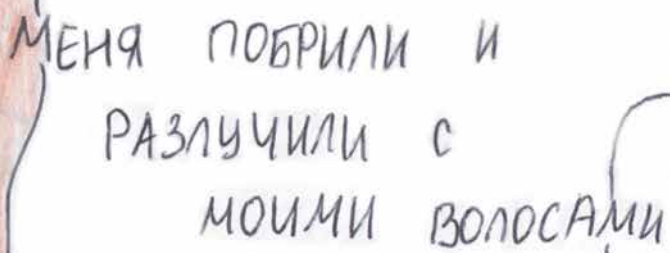 МЕНЯ ПОБРИЛИ И
РАЗЛУЧИЛИ С
МОИМИ ВОЛОСАМИ